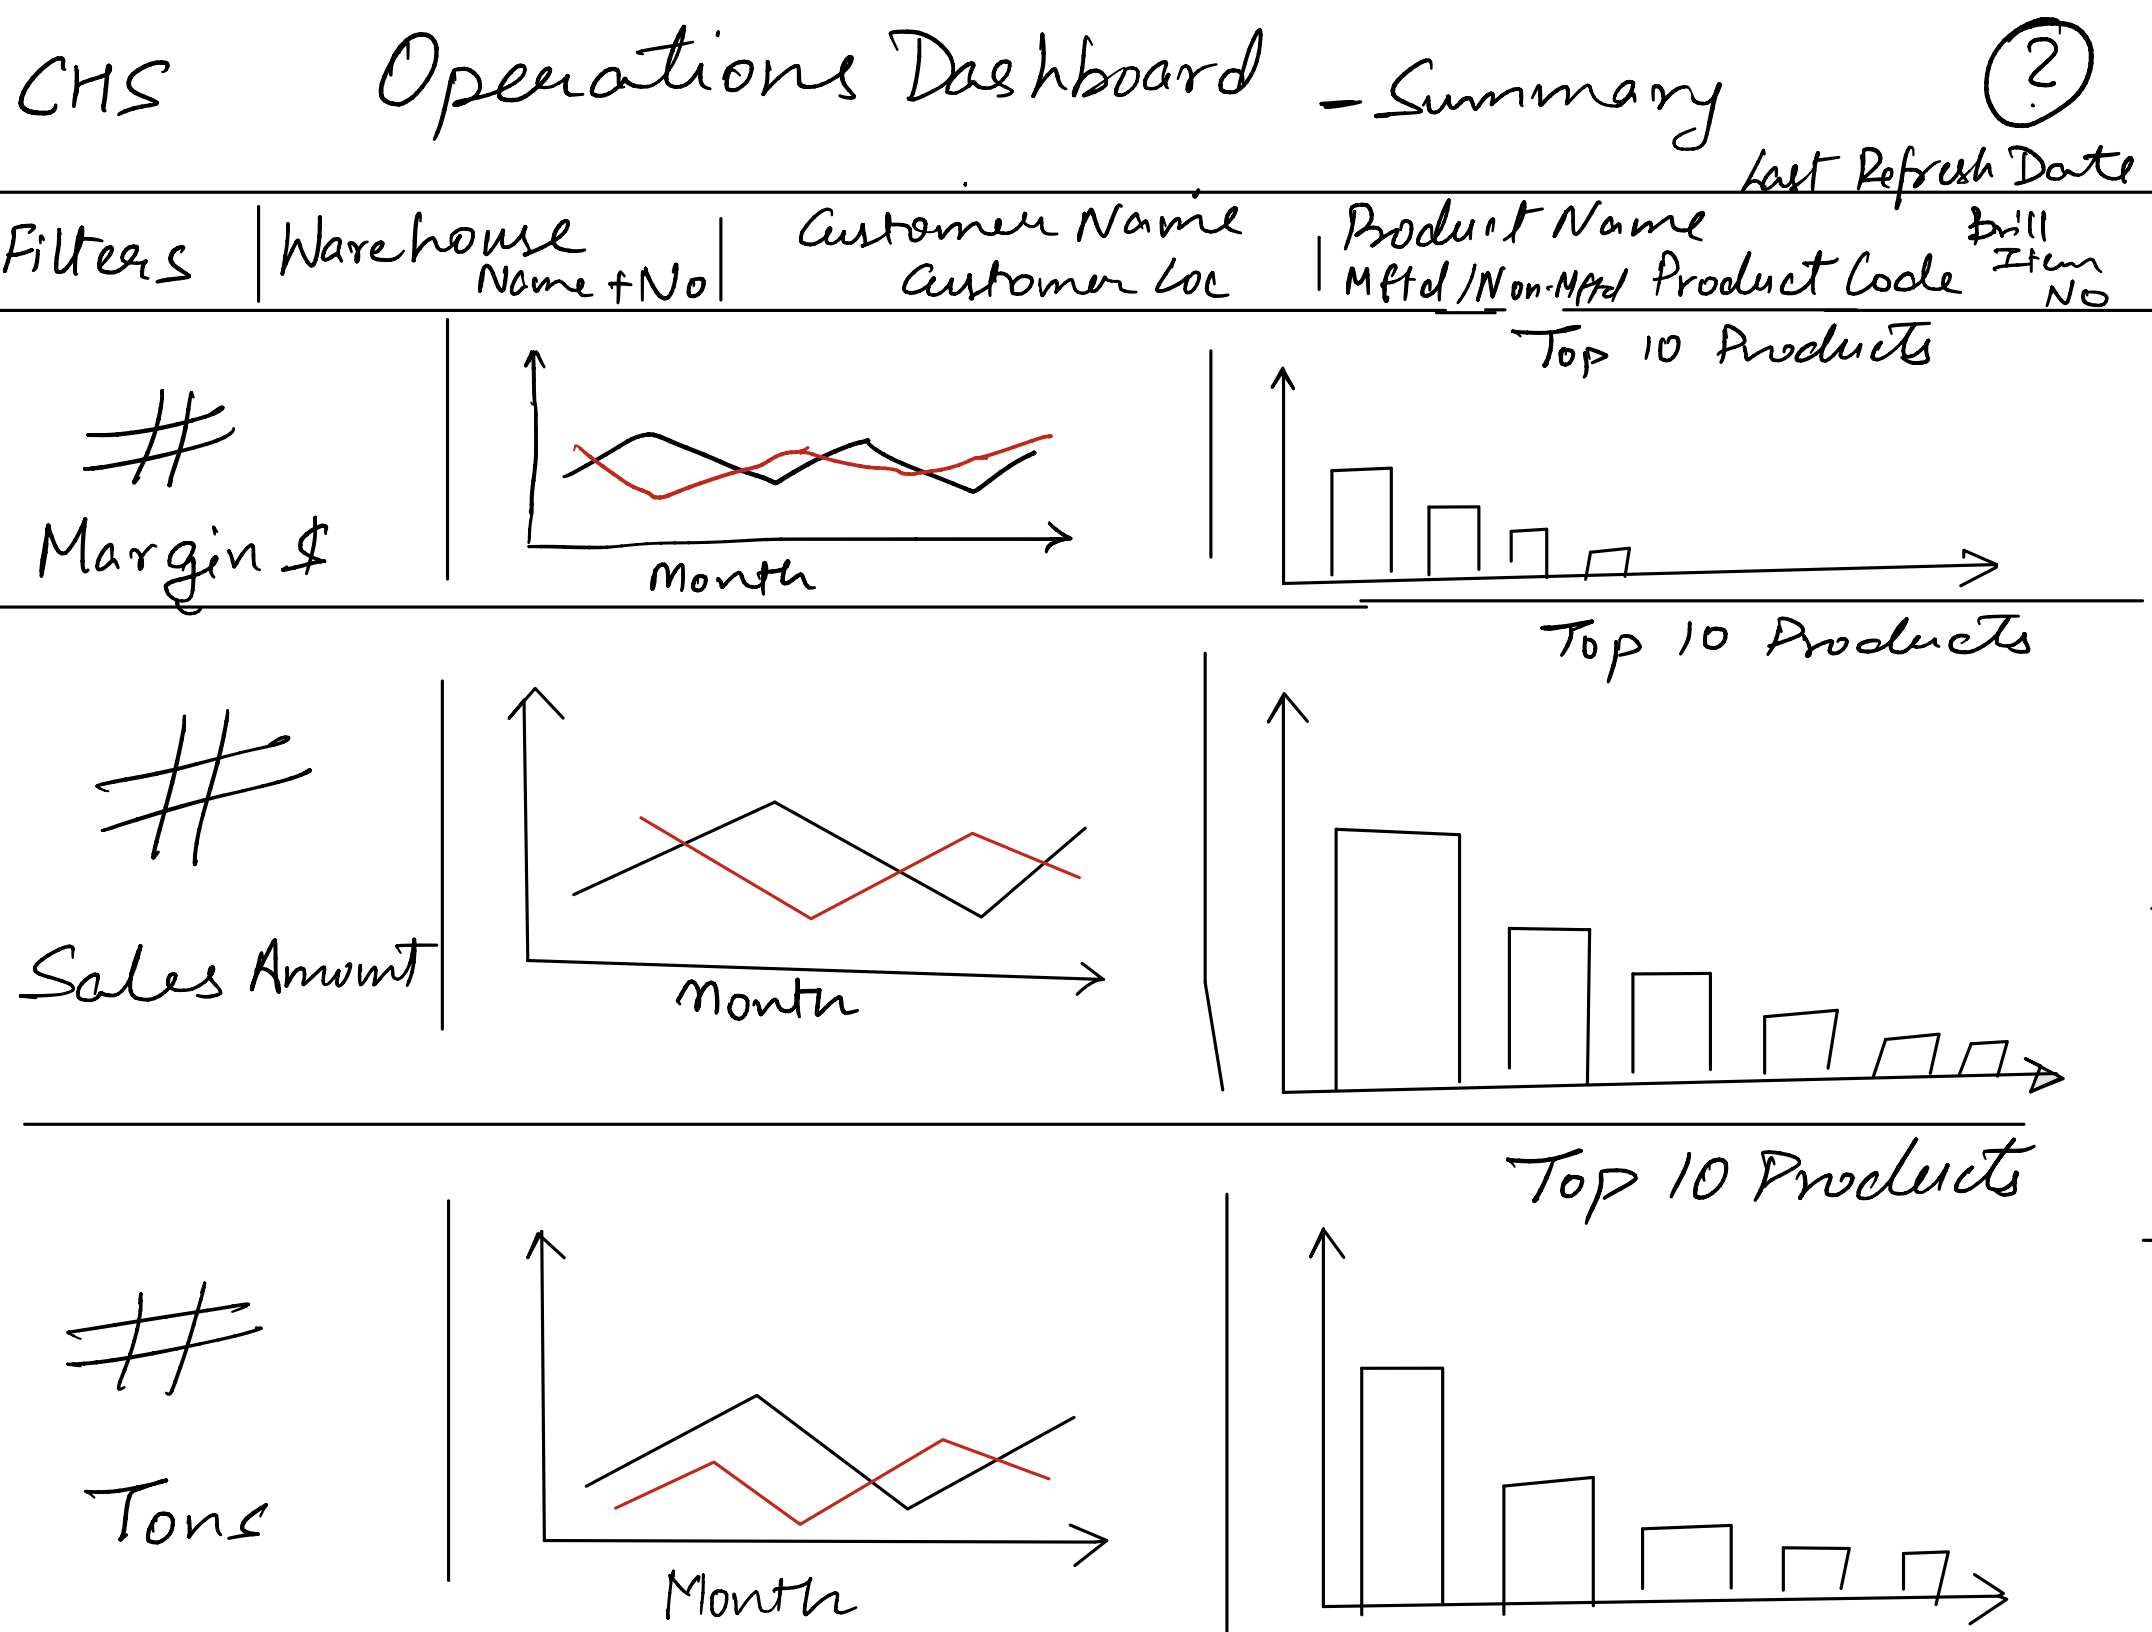 CHS Operations Dashboard - Summary ?
Last Refresh Date
Filters | Warehouse Name + No | Customer Name Customer Loc | Product Name Mftd/Non-Mftd Product Code Drill Item No
Top 10 Products
#
Margin $
Month
Top 10 Products
#
Sales Amount
Month
Top 10 Products
#
Tons
Month